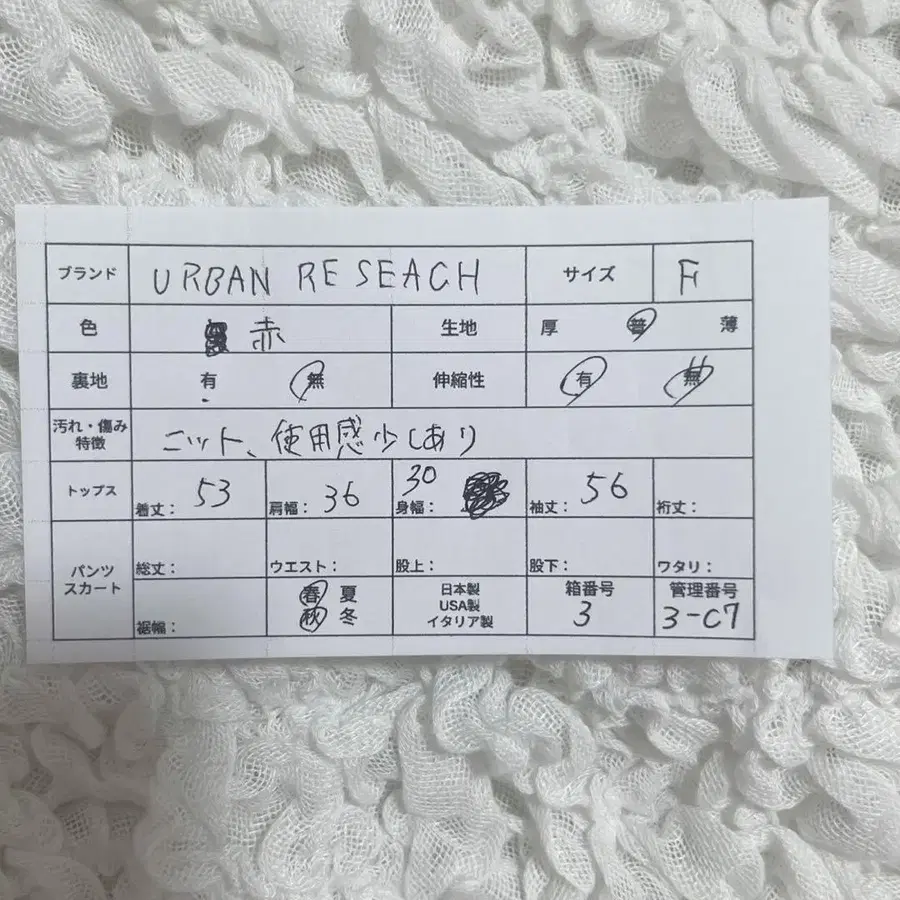 ブランド URBAN RESEACH サイズ F
色 赤 生地 厚 普 薄
裏地 有 無 伸縮性 有 無
汚れ・傷み
特徴 ニット、使用感少しあり
トップス 着丈: 53 肩幅: 36 身幅: 30 袖丈: 56 裄丈:
パンツ
スカート 総丈: ウエスト: 股上: 股下: ワタリ:
裾幅: 春 夏 秋 冬 日本製 USA製 イタリア製 箱番号 3 管理番号 3-C7